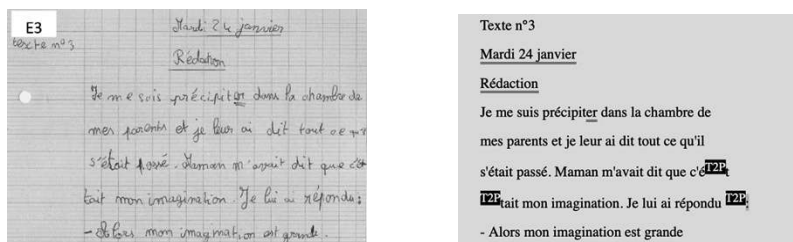 E3
texte n°3
Mardi 24 janvier
Rédaction
Je me suis précipiter dans la chambre de
mes parents et je leur ai dit tout ce
s'était passé. Maman m'avait dit que c'ét
tait mon imagination. Je lui ai répondu :
- Alors mon imagination est grande.
Texte n°3
Mardi 24 janvier
Rédaction
Je me suis précipiter dans la chambre de
mes parents et je leur ai dit tout ce qu'il
s'était passé. Maman m'avait dit que c'éT2Pt
T2Ptait mon imagination. Je lui ai répondu T2P:
- Alors mon imagination est grande